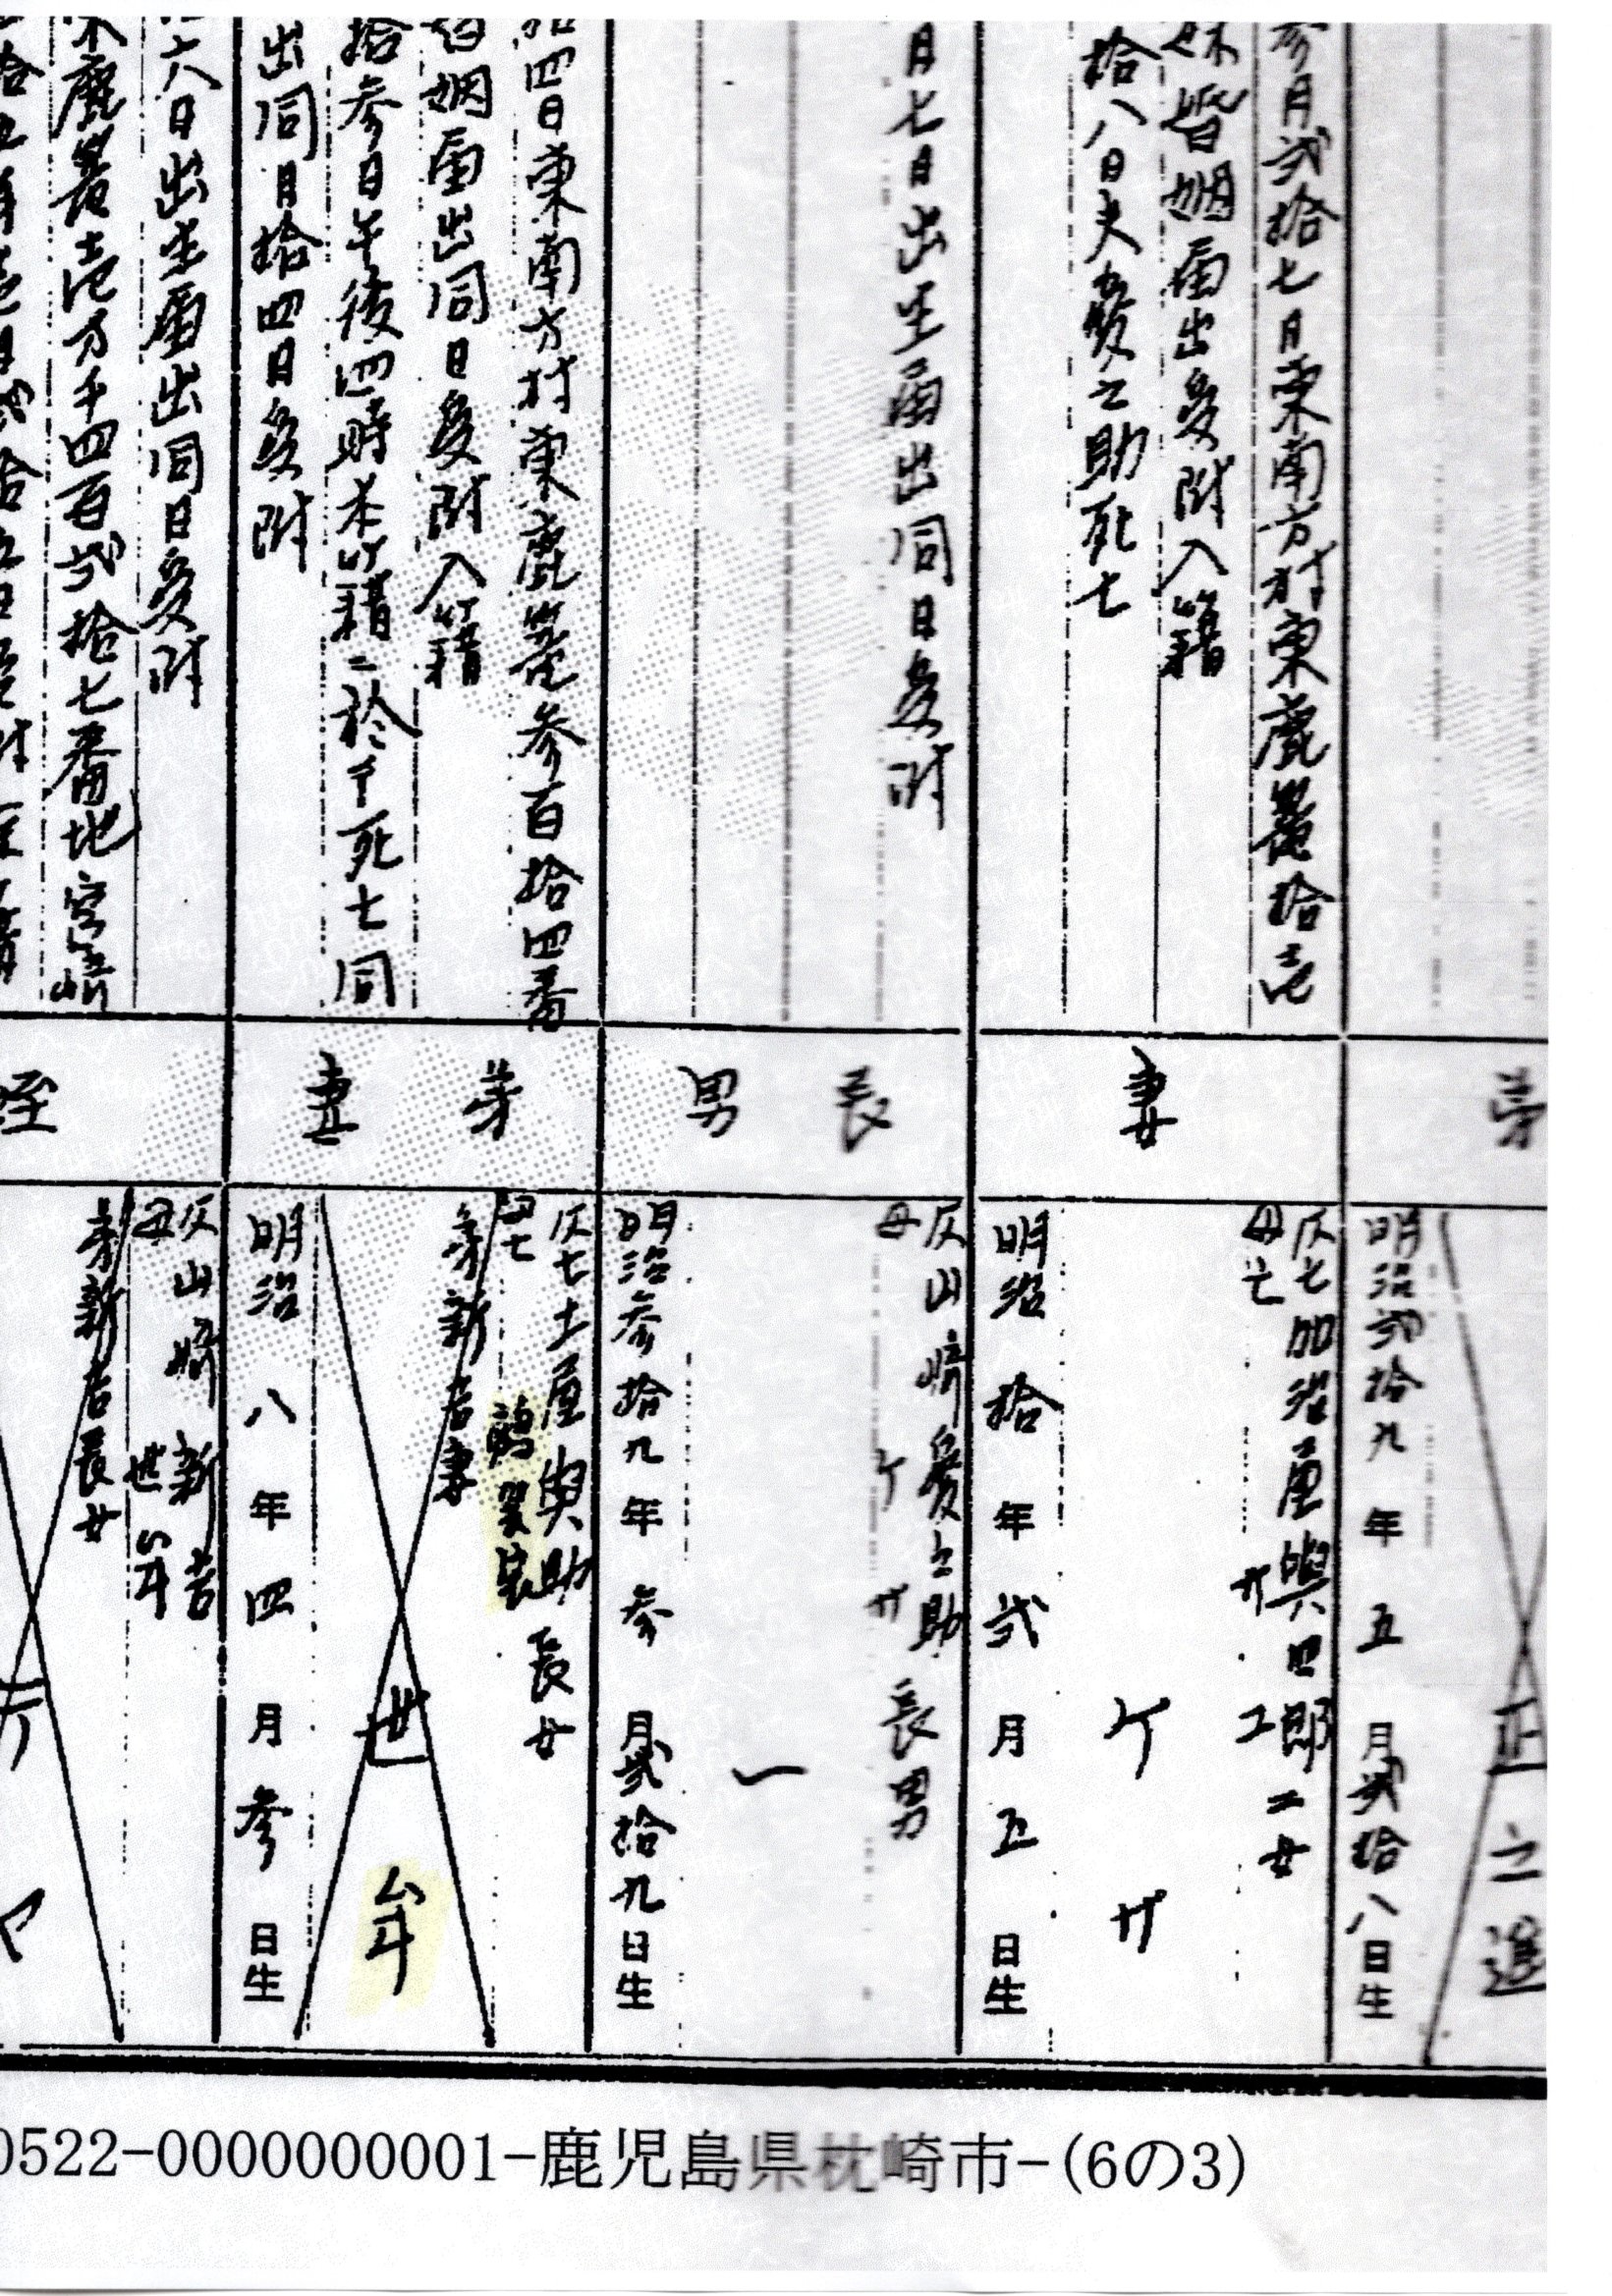 弟
正之進
明治弐拾九年五月弐拾八日生
参月弐拾七日東南方村東鹿篭拾壱
婚姻届出受附入籍
拾八日夫愛之助死亡
妻
父亡加治屋與四郎二女
母亡
ケサ
明治拾年弐月五日生
月七日出生届出同日受附
長男
父山崎愛之助長男
母ケサ
一
明治参拾九年参月弐拾九日生
拾四日東南方村東鹿篭参百拾四番
婚姻届出同日受附入籍
拾参日午後四時本籍ニ於テ死亡同
出同月拾四日受附
弟妻
父亡土屋與助長女
母亡
弟新吉妻
世牟
明治八年四月参日生
六日出生届出同日受附
東鹿篭壱万千四百弐拾七番地宮崎
姪
父山崎新吉
母世牟
弟新吉長女
0522-0000000001-鹿児島県枕崎市-(6の3)